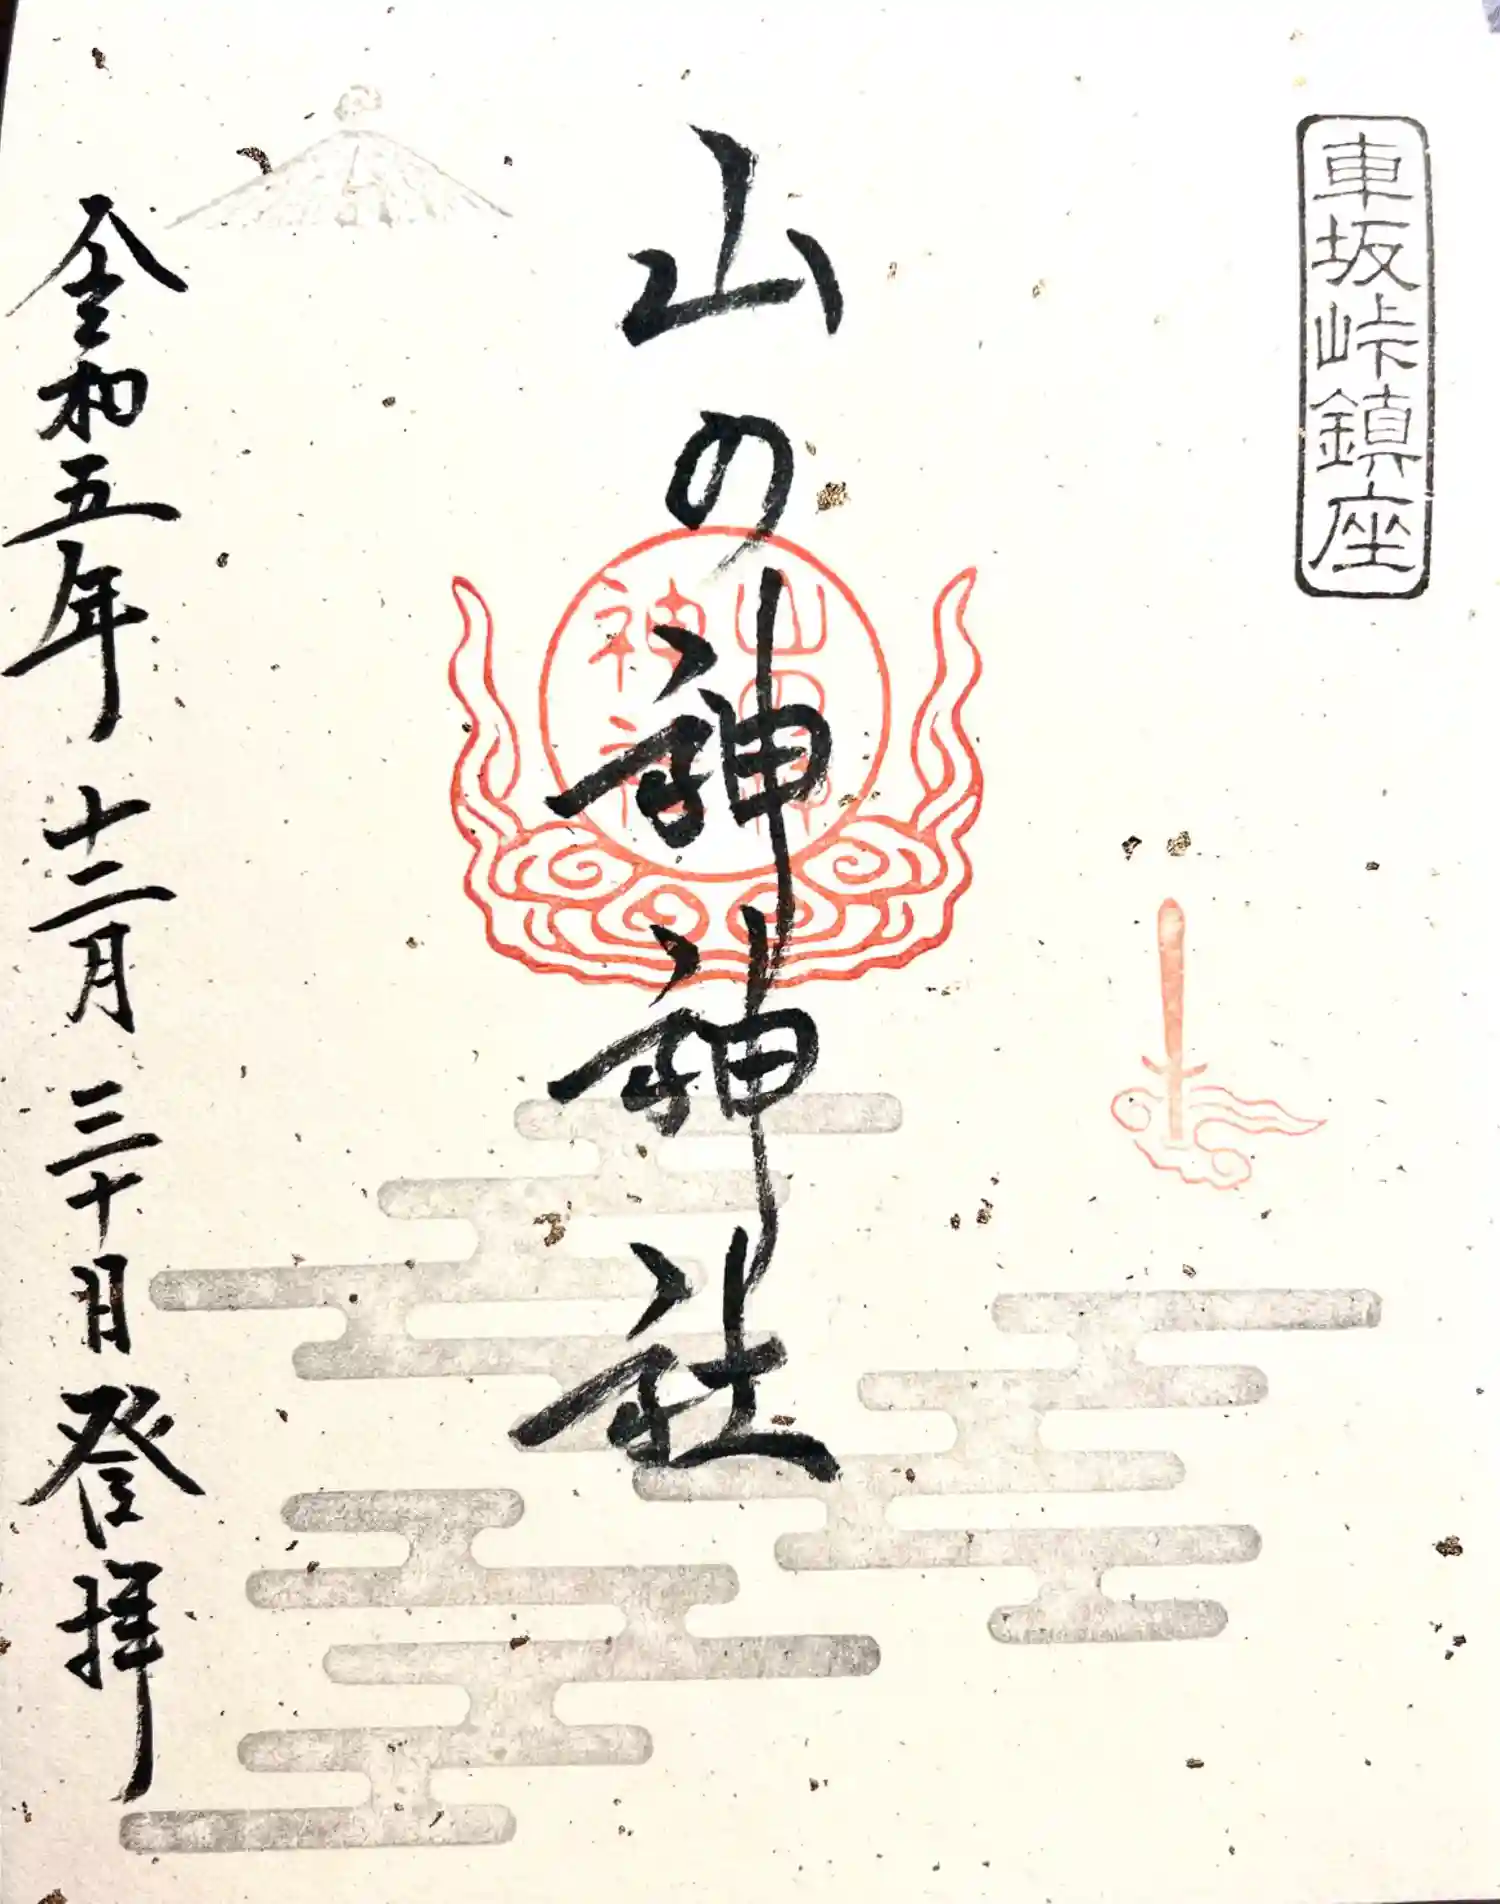 車坂峠鎮座
山の神神社
山之神
神社
令和五年 十二月 三十日 登拝